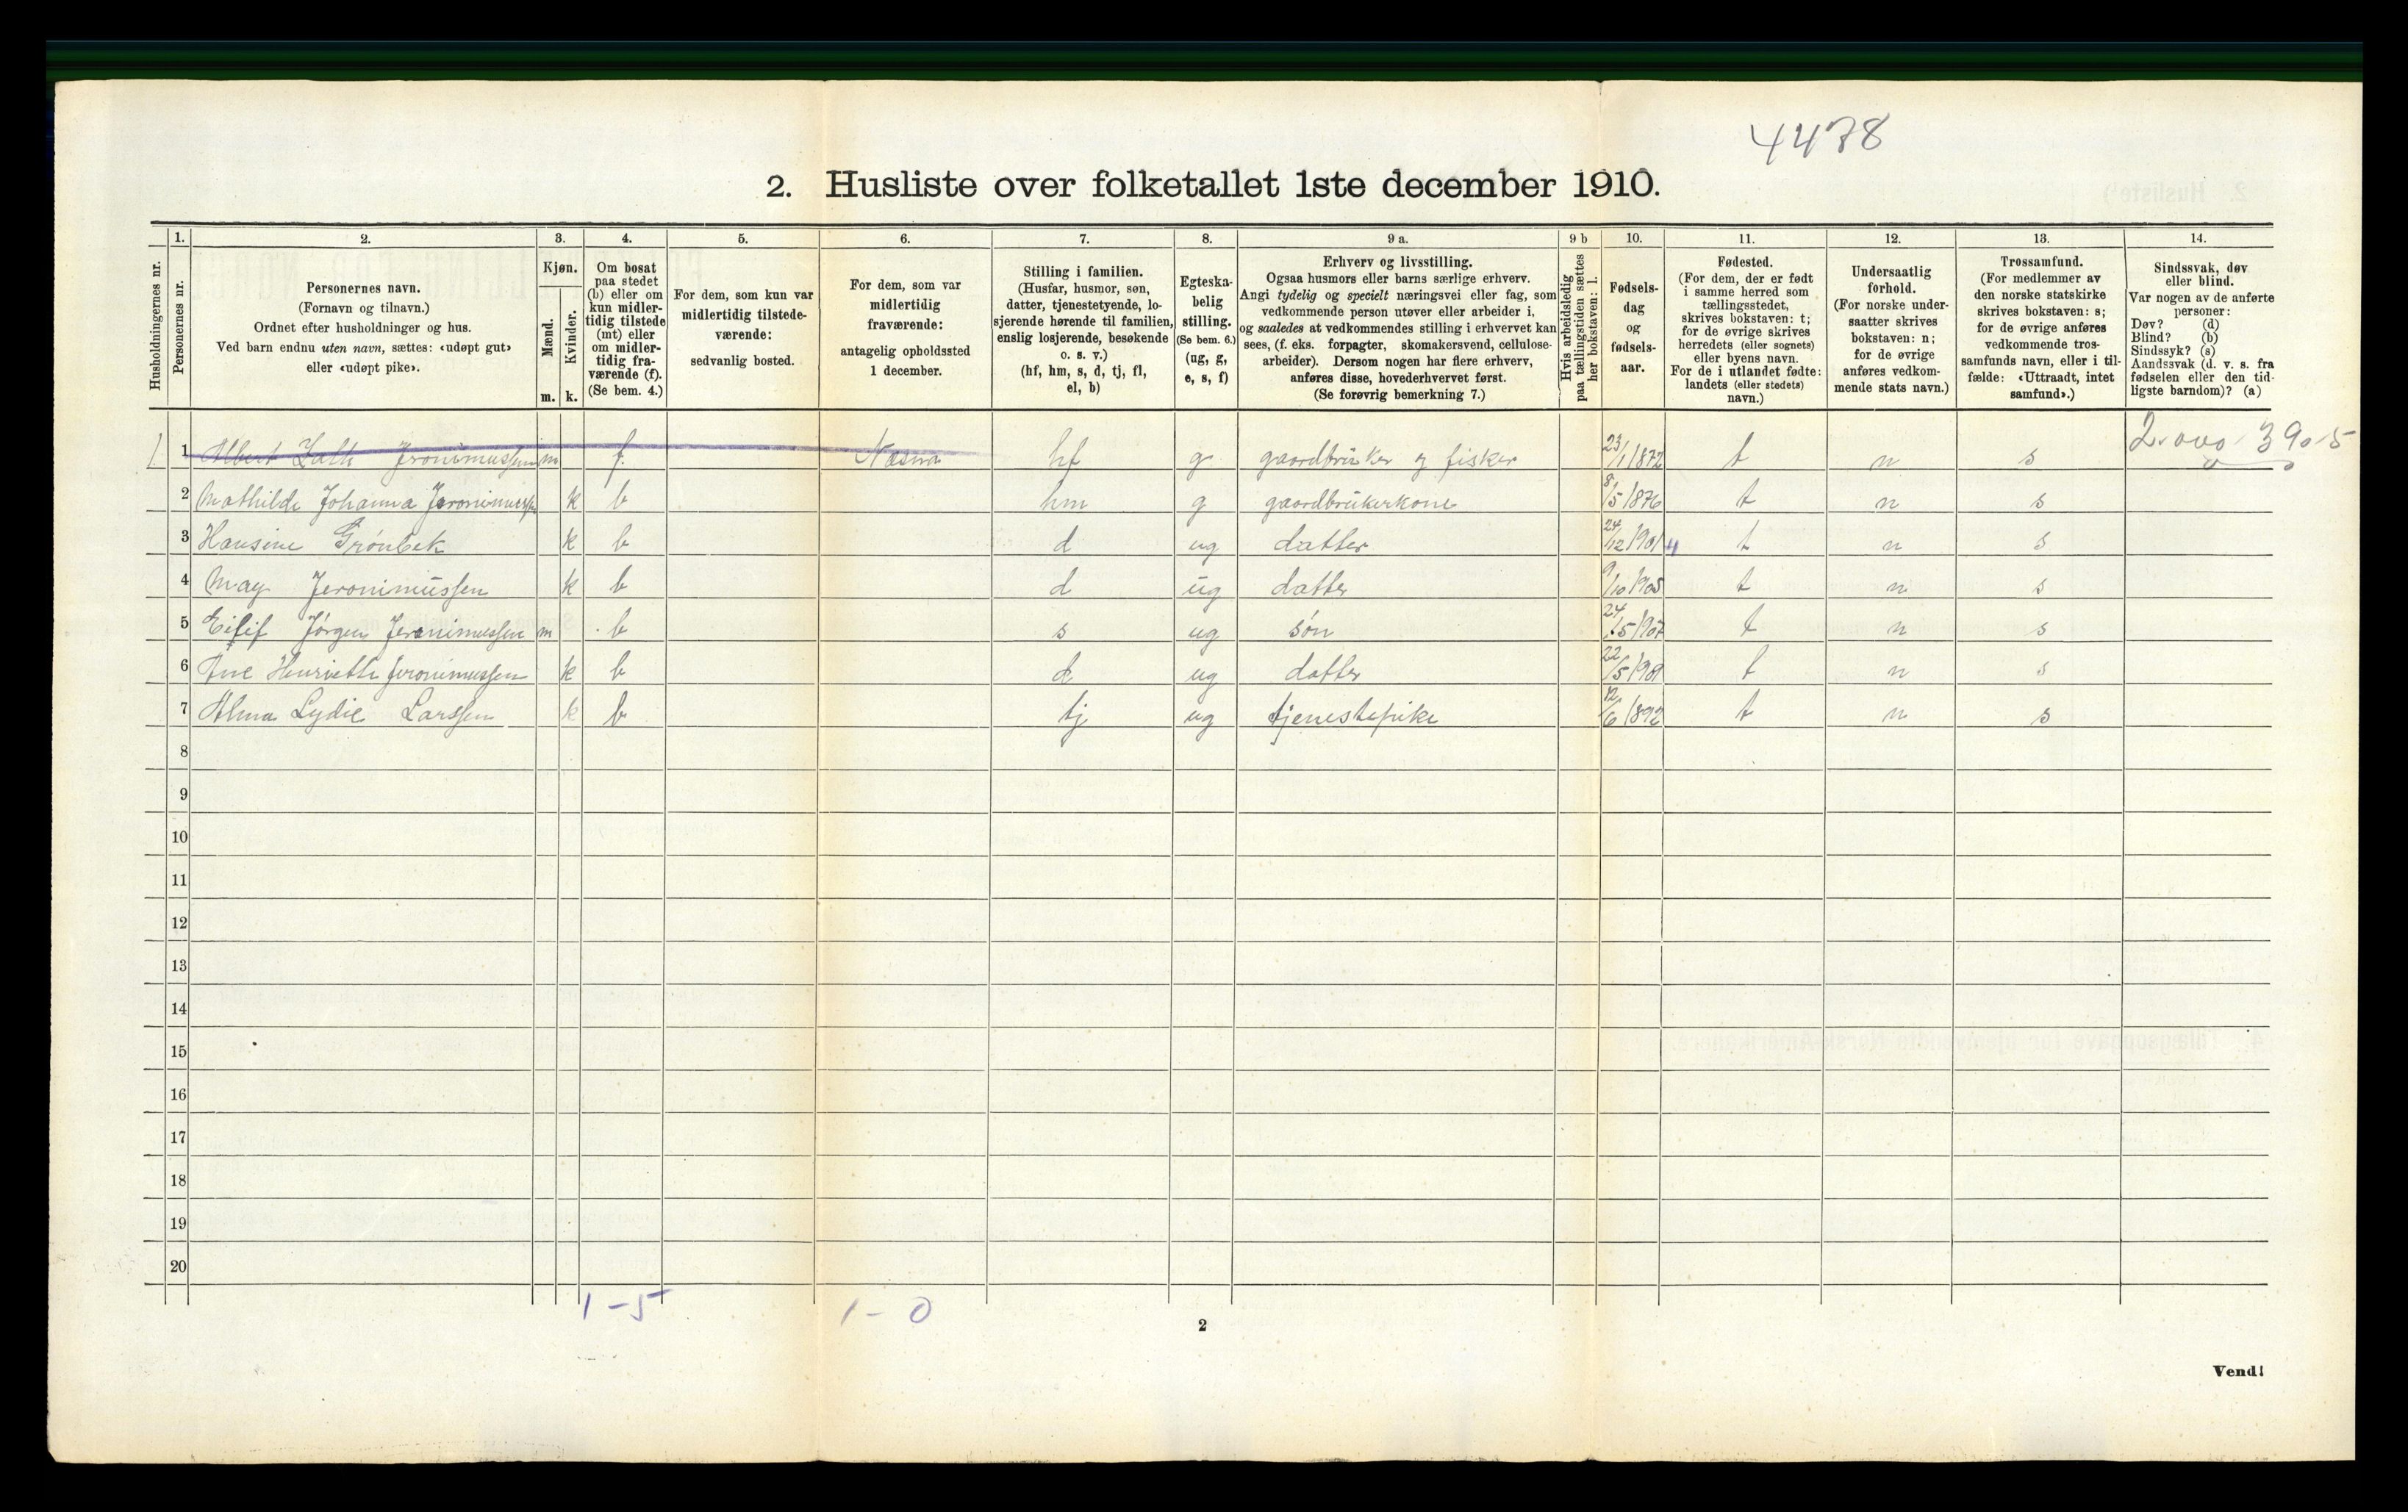 4478
2. Husliste over folketallet 1ste december 1910.
Husholdningernes nr.
1.
Personernes nr.
2.
Personernes navn.
(Fornavn og tilnavn.)
Ordnet efter husholdninger og hus.
Ved barn endnu uten navn, sættes: «udøpt gut»
eller «udøpt pike».
3.
Kjøn.
Mænd.
Kvinder.
m. k.
4.
Om bosat
paa stedet
(b) eller om
kun midler-
tidig tilstede
(mt) eller
om midler-
tidig fra-
værende (f).
(Se bem. 4.)
5.
For dem, som kun var
midlertidig tilstede-
værende:
sedvanlig bosted.
6.
For dem, som var
midlertidig
fraværende:
antagelig opholdssted
1 december.
7.
Stilling i familien.
(Husfar, husmor, søn,
datter, tjenestetyende, lo-
sjerende hørende til familien,
enslig losjerende, besøkende
o. s. v.)
(hf, hm, s, d, tj, fl,
el, b)
8.
Egteska-
belig
stilling.
(Se bem. 6.)
(ug, g,
e, s, f)
9 a.
Erhverv og livsstilling.
Ogsaa husmors eller barns særlige erhverv.
Angi tydelig og specielt næringsvei eller fag, som
vedkommende person utøver eller arbeider i,
og saaledes at vedkommendes stilling i erhvervet kan
sees, (f. eks. forpagter, skomakersvend, cellulose-
arbeider). Dersom nogen har flere erhverv,
anføres disse, hovederhvervet først.
(Se forøvrig bemerkning 7.)
9 b
Hvis arbeidsledig
paa tællingstiden sættes
her bokstaven: l.
10.
Fødsels-
dag
og
fødsels-
aar.
11.
Fødested.
(For dem, der er født
i samme herred som
tællingsstedet,
skrives bokstaven: t;
for de øvrige skrives
herredets (eller sognets)
eller byens navn.
For de i utlandet fødte:
landets (eller stedets)
navn.)
12.
Undersaatlig
forhold.
(For norske under-
saatter skrives
bokstaven: n;
for de øvrige
anføres vedkom-
mende stats navn.)
13.
Trossamfund.
(For medlemmer av
den norske statskirke
skrives bokstaven: s;
for de øvrige anføres
vedkommende tros-
samfunds navn, eller i til-
fælde: «Uttraadt, intet
samfund».)
14.
Sindssvak, døv
eller blind.
Var nogen av de anførte
personer:
Døv? (d)
Blind? (b)
Sindssyk? (s)
Aandssvak (d. v. s. fra
fødselen eller den tid-
ligste barndom)? (a)
1. 1 Albert Jeronimussen m f. Næsna hf g gaardbruker og fisker 23/1/872 t n s
2 Mathilde Johanna k b hm g gaardbrukerkone 8/5/876 t n s
3 Hansine Grönbek k b d ug datter 24/12/901 t n s
4 May Jeronimussen k b d ug datter 9/10/905 t n s
5 Eilif Jörgen Jeronimussen m b s ug sön 24/5/907 t n s
6 Ane Henriette Jeronimussen k b d ug datter 22/5/909 t n s
7 Alma Lydie Larssen k b tj ug tjenestepike 12/6/892 t n s
8
9
10
11
12
13
14
15
16
17
18
19
20
1-5 1-0
2
Vend!